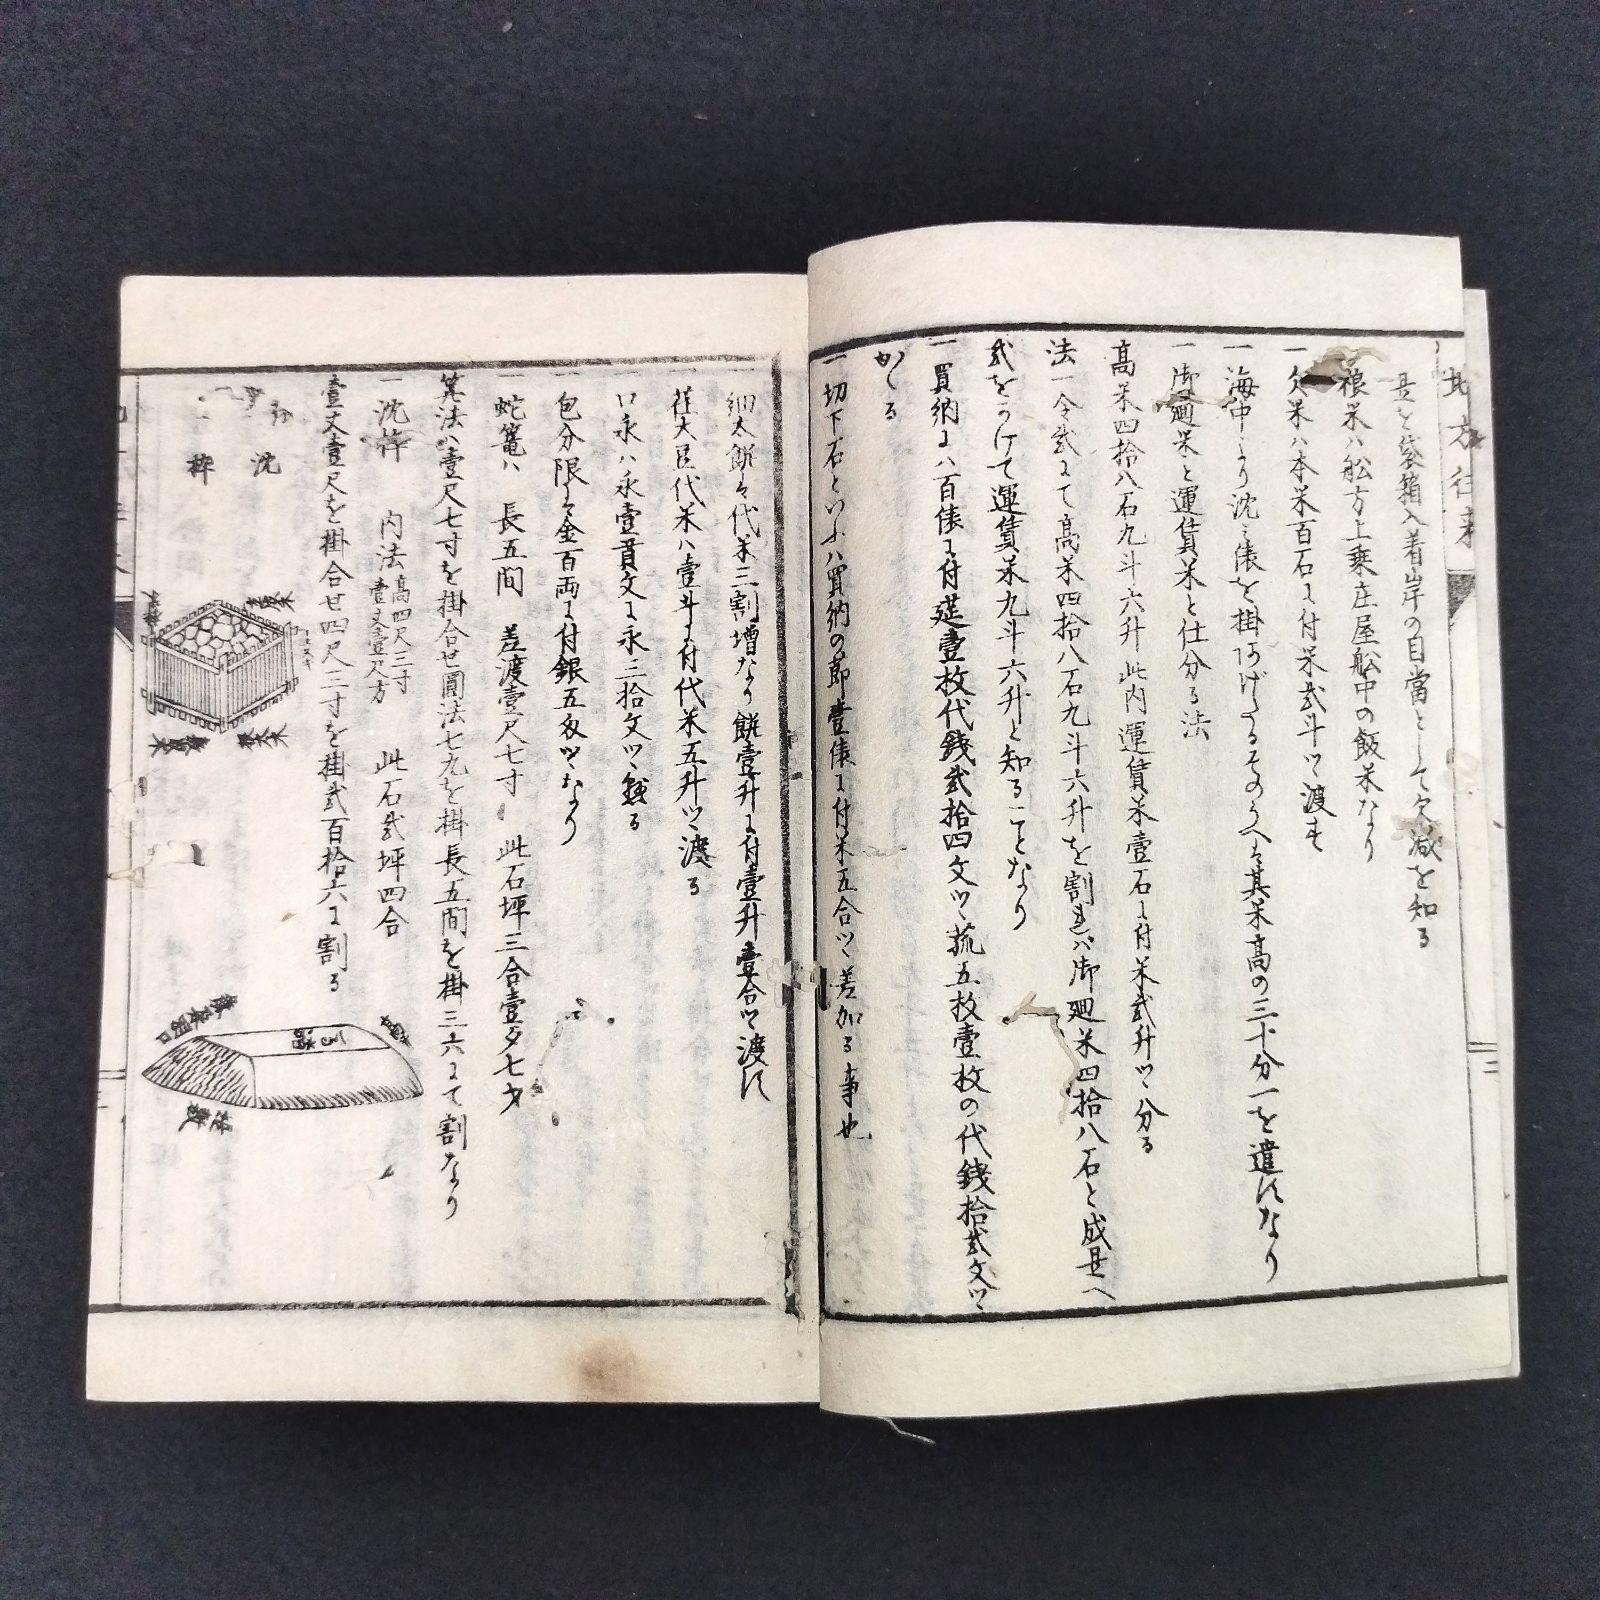 地方往来
是を袋箱入着岸の目當として欠減を知る
一粮米ハ舩方上乗庄屋舩中の飯米なり
一欠米ハ本米百石ニ付米弐斗ツヽ渡す
一海中より沈ミ俵を掛りあげたるそのうへハ其米高の三十分一を遣スなり
一御廻米と運賃米と仕分る法
高米四拾八石九斗六升 此内運賃米壹石ニ付米弐升ツヽ分る
法一令弐にて高米四拾八石九斗六升を割れハ御廻米四拾八石と成是へ
弐をかけて運賃米九斗六升と知ることなり
一買納ニハ百俵ニ付莚壹枚代銭弐拾四文ツヽ菰五枚壹枚の代銭拾弐文ツヽ
かゝる
一切下石といふハ買納の節壹俵ニ付米五合ツヽ差加る事也
一細太餅ハ代米三割増なり餅壹升ニ付壹升壹合ツヽ渡ス
一荏大豆代米ハ壹斗ニ付代米五升ツヽ渡る
一口永ハ永壹貫文ニ永三拾文ツヽ懸る
一包分限ハ金百両ニ付銀五匁ツヽなり
一蛇篭ハ 長五間 差渡壹尺七寸 此石坪三合壹夕七才
算法ハ壹尺七寸を掛合せ圓法七九を掛長五間を掛三六にて割なり
一沈枠 内法高四尺三寸壹丈壹尺方 此石弐坪四合
壹丈壹尺を掛合せ四尺三寸を掛弐百拾六ニ割る
沈
枠
三